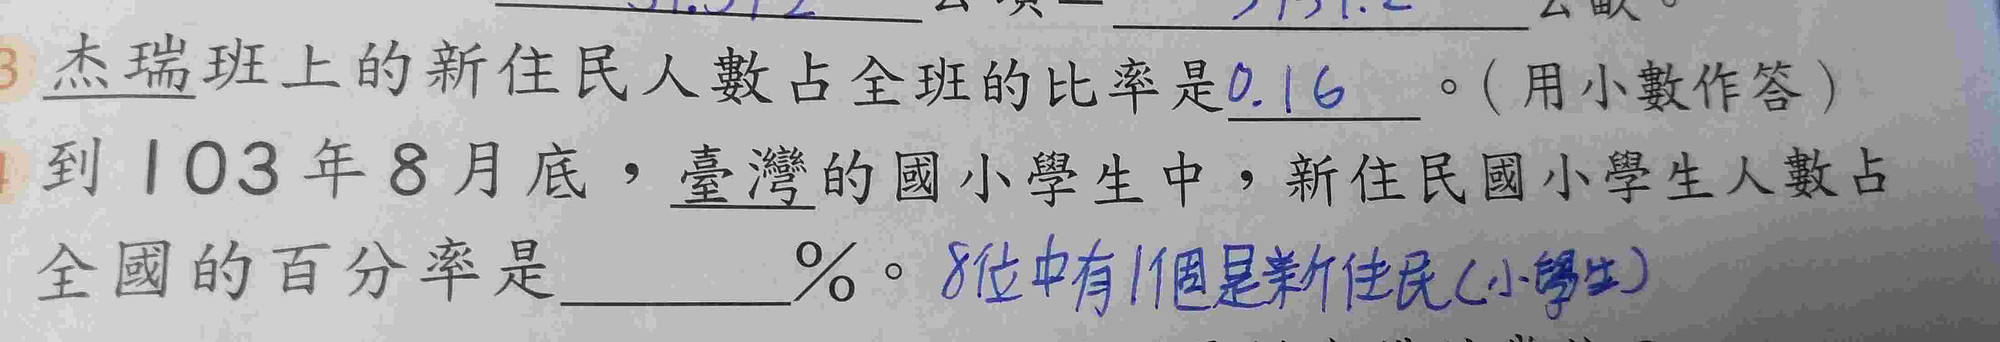 公頃＝ 公畝。
3 杰瑞班上的新住民人數占全班的比率是0.16。(用小數作答)
4 到103年8月底，臺灣的國小學生中，新住民國小學生人數占
全國的百分率是______%。8位中有1個是新住民(小學生)